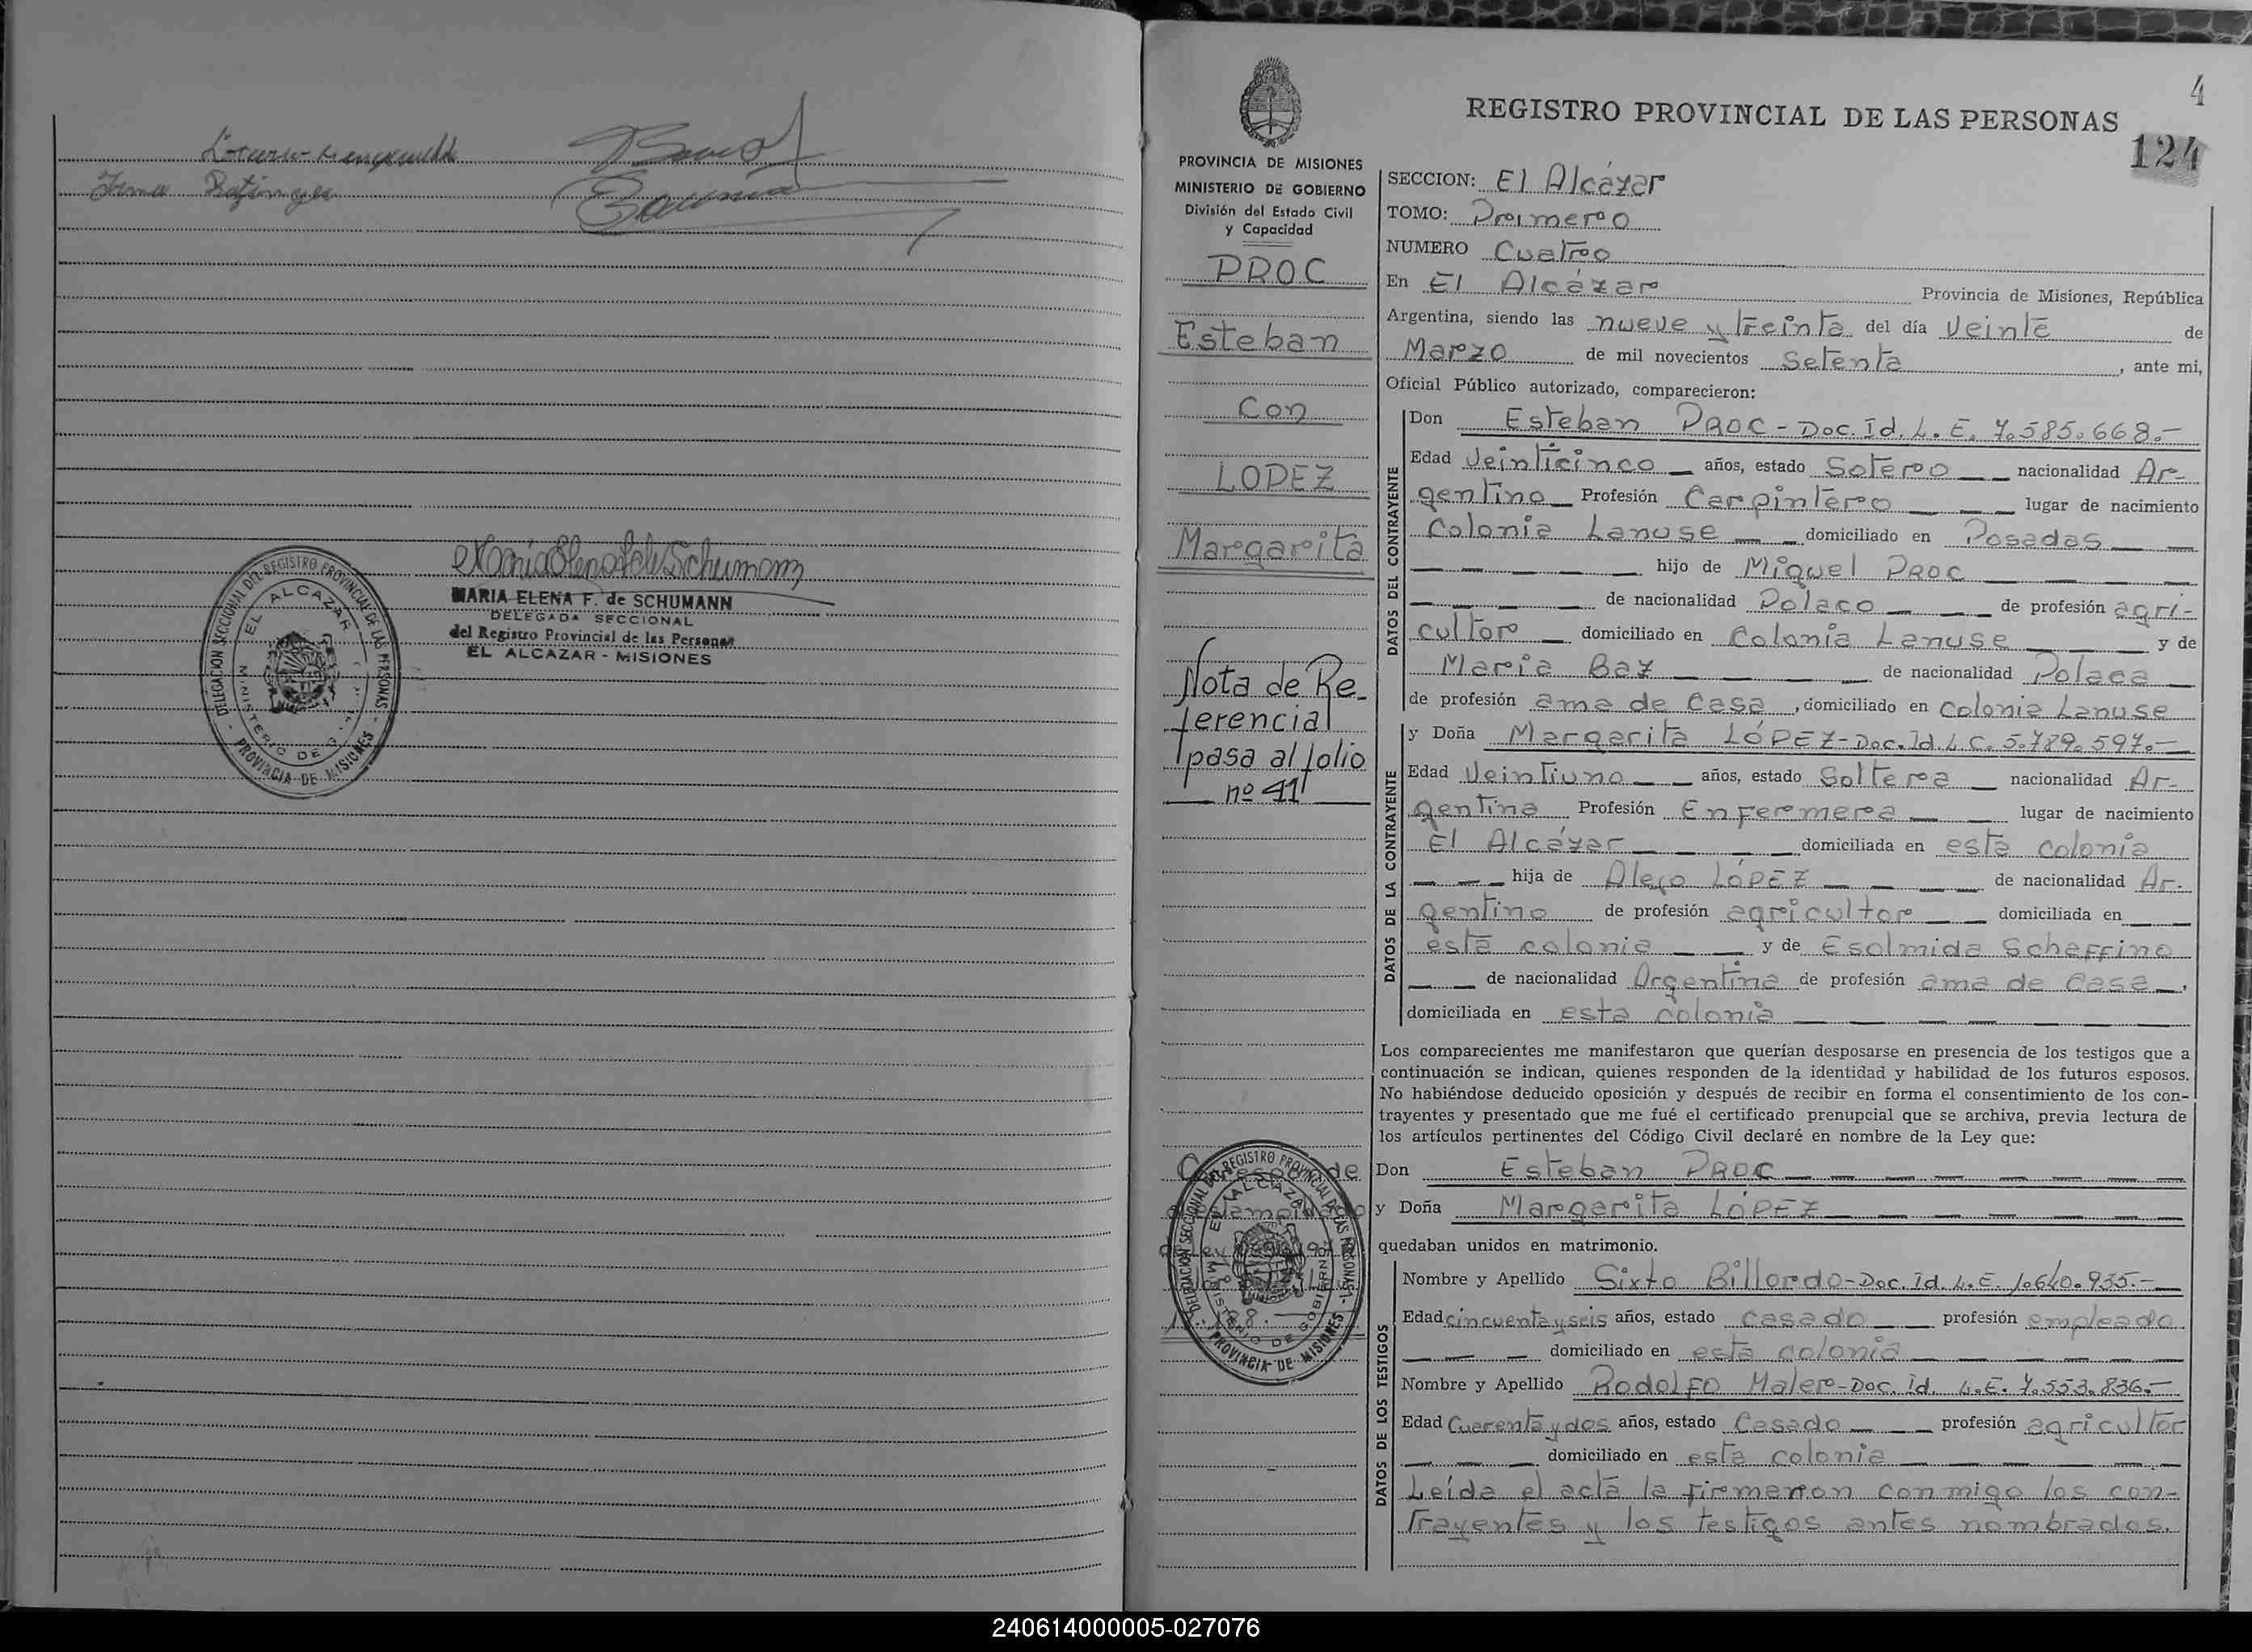 MARIA ELENA F. de SCHUMANN
DELEGADA SECCIONAL
del Registro Provincial de las Personas
EL ALCAZAR - MISIONES
DELEGACION SECCIONAL DEL REGISTRO PROVINCIAL DE LAS PERSONAS - PROVINCIA DE MISIONES
EL ALCAZAR
MINISTERIO DE G.
4
REGISTRO PROVINCIAL DE LAS PERSONAS
124
PROVINCIA DE MISIONES
MINISTERIO DE GOBIERNO
División del Estado Civil
y Capacidad
PROC
Esteban
Con
LOPEZ
Margarita
Nota de Re-
ferencial
pasa al folio
nº 41
DELEGACION SECCIONAL DEL REGISTRO PROVINCIAL DE LAS PERSONAS - PROVINCIA DE MISIONES
EL ALCAZAR
MINISTERIO DE GOBIERNO
SECCION: El Alcázar
TOMO: Primero
NUMERO Cuatro
En El Alcázar Provincia de Misiones, República
Argentina, siendo las nueve y treinta del día Veinte de
Marzo de mil novecientos Setenta, ante mi,
Oficial Público autorizado, comparecieron:
DATOS DEL CONTRAYENTE
Don Esteban PROC - Doc. Id. L. E. 7.585.668.-
Edad Veinticinco años, estado Soltero nacionalidad Ar-
gentino Profesión Carpintero lugar de nacimiento
Colonia Lanuse domiciliado en Posadas
hijo de Miguel PROC
de nacionalidad Polaco de profesión agri-
cultor domiciliado en Colonia Lanuse y de
Maria Baz de nacionalidad Polaca
de profesión ama de Casa, domiciliado en Colonia Lanuse
DATOS DE LA CONTRAYENTE
y Doña Margarita LÓPEZ - Doc. Id. L. C. 5.789.597.-
Edad Veintiuno años, estado Soltera nacionalidad Ar-
gentina Profesión Enfermera lugar de nacimiento
El Alcázar domiciliada en esta colonia
hija de Alejo LÓPEZ de nacionalidad Ar.
gentino de profesión agricultor domiciliada en
esta colonia y de Esolmida Schaffino
de nacionalidad Argentina de profesión ama de Casa,
domiciliada en esta colonia
Los comparecientes me manifestaron que querían desposarse en presencia de los testigos que a
continuación se indican, quienes responden de la identidad y habilidad de los futuros esposos.
No habiéndose deducido oposición y después de recibir en forma el consentimiento de los con-
trayentes y presentado que me fué el certificado prenupcial que se archiva, previa lectura de
los artículos pertinentes del Código Civil declaré en nombre de la Ley que:
Don Esteban PROC
y Doña Margarita LÓPEZ
quedaban unidos en matrimonio.
DATOS DE LOS TESTIGOS
Nombre y Apellido Sixto Billordo - Doc. Id. L. E. 1.640.935.-
Edad cincuenta y seis años, estado casado profesión empleado
domiciliado en esta colonia
Nombre y Apellido Rodolfo Maler - Doc. Id. L. E. 7.553.836.-
Edad Cuarenta y dos años, estado Casado profesión agricultor
domiciliado en esta colonia
Leída el acta la firmaron conmigo los con-
trayentes y los testigos antes nombrados.
240614000005-027076